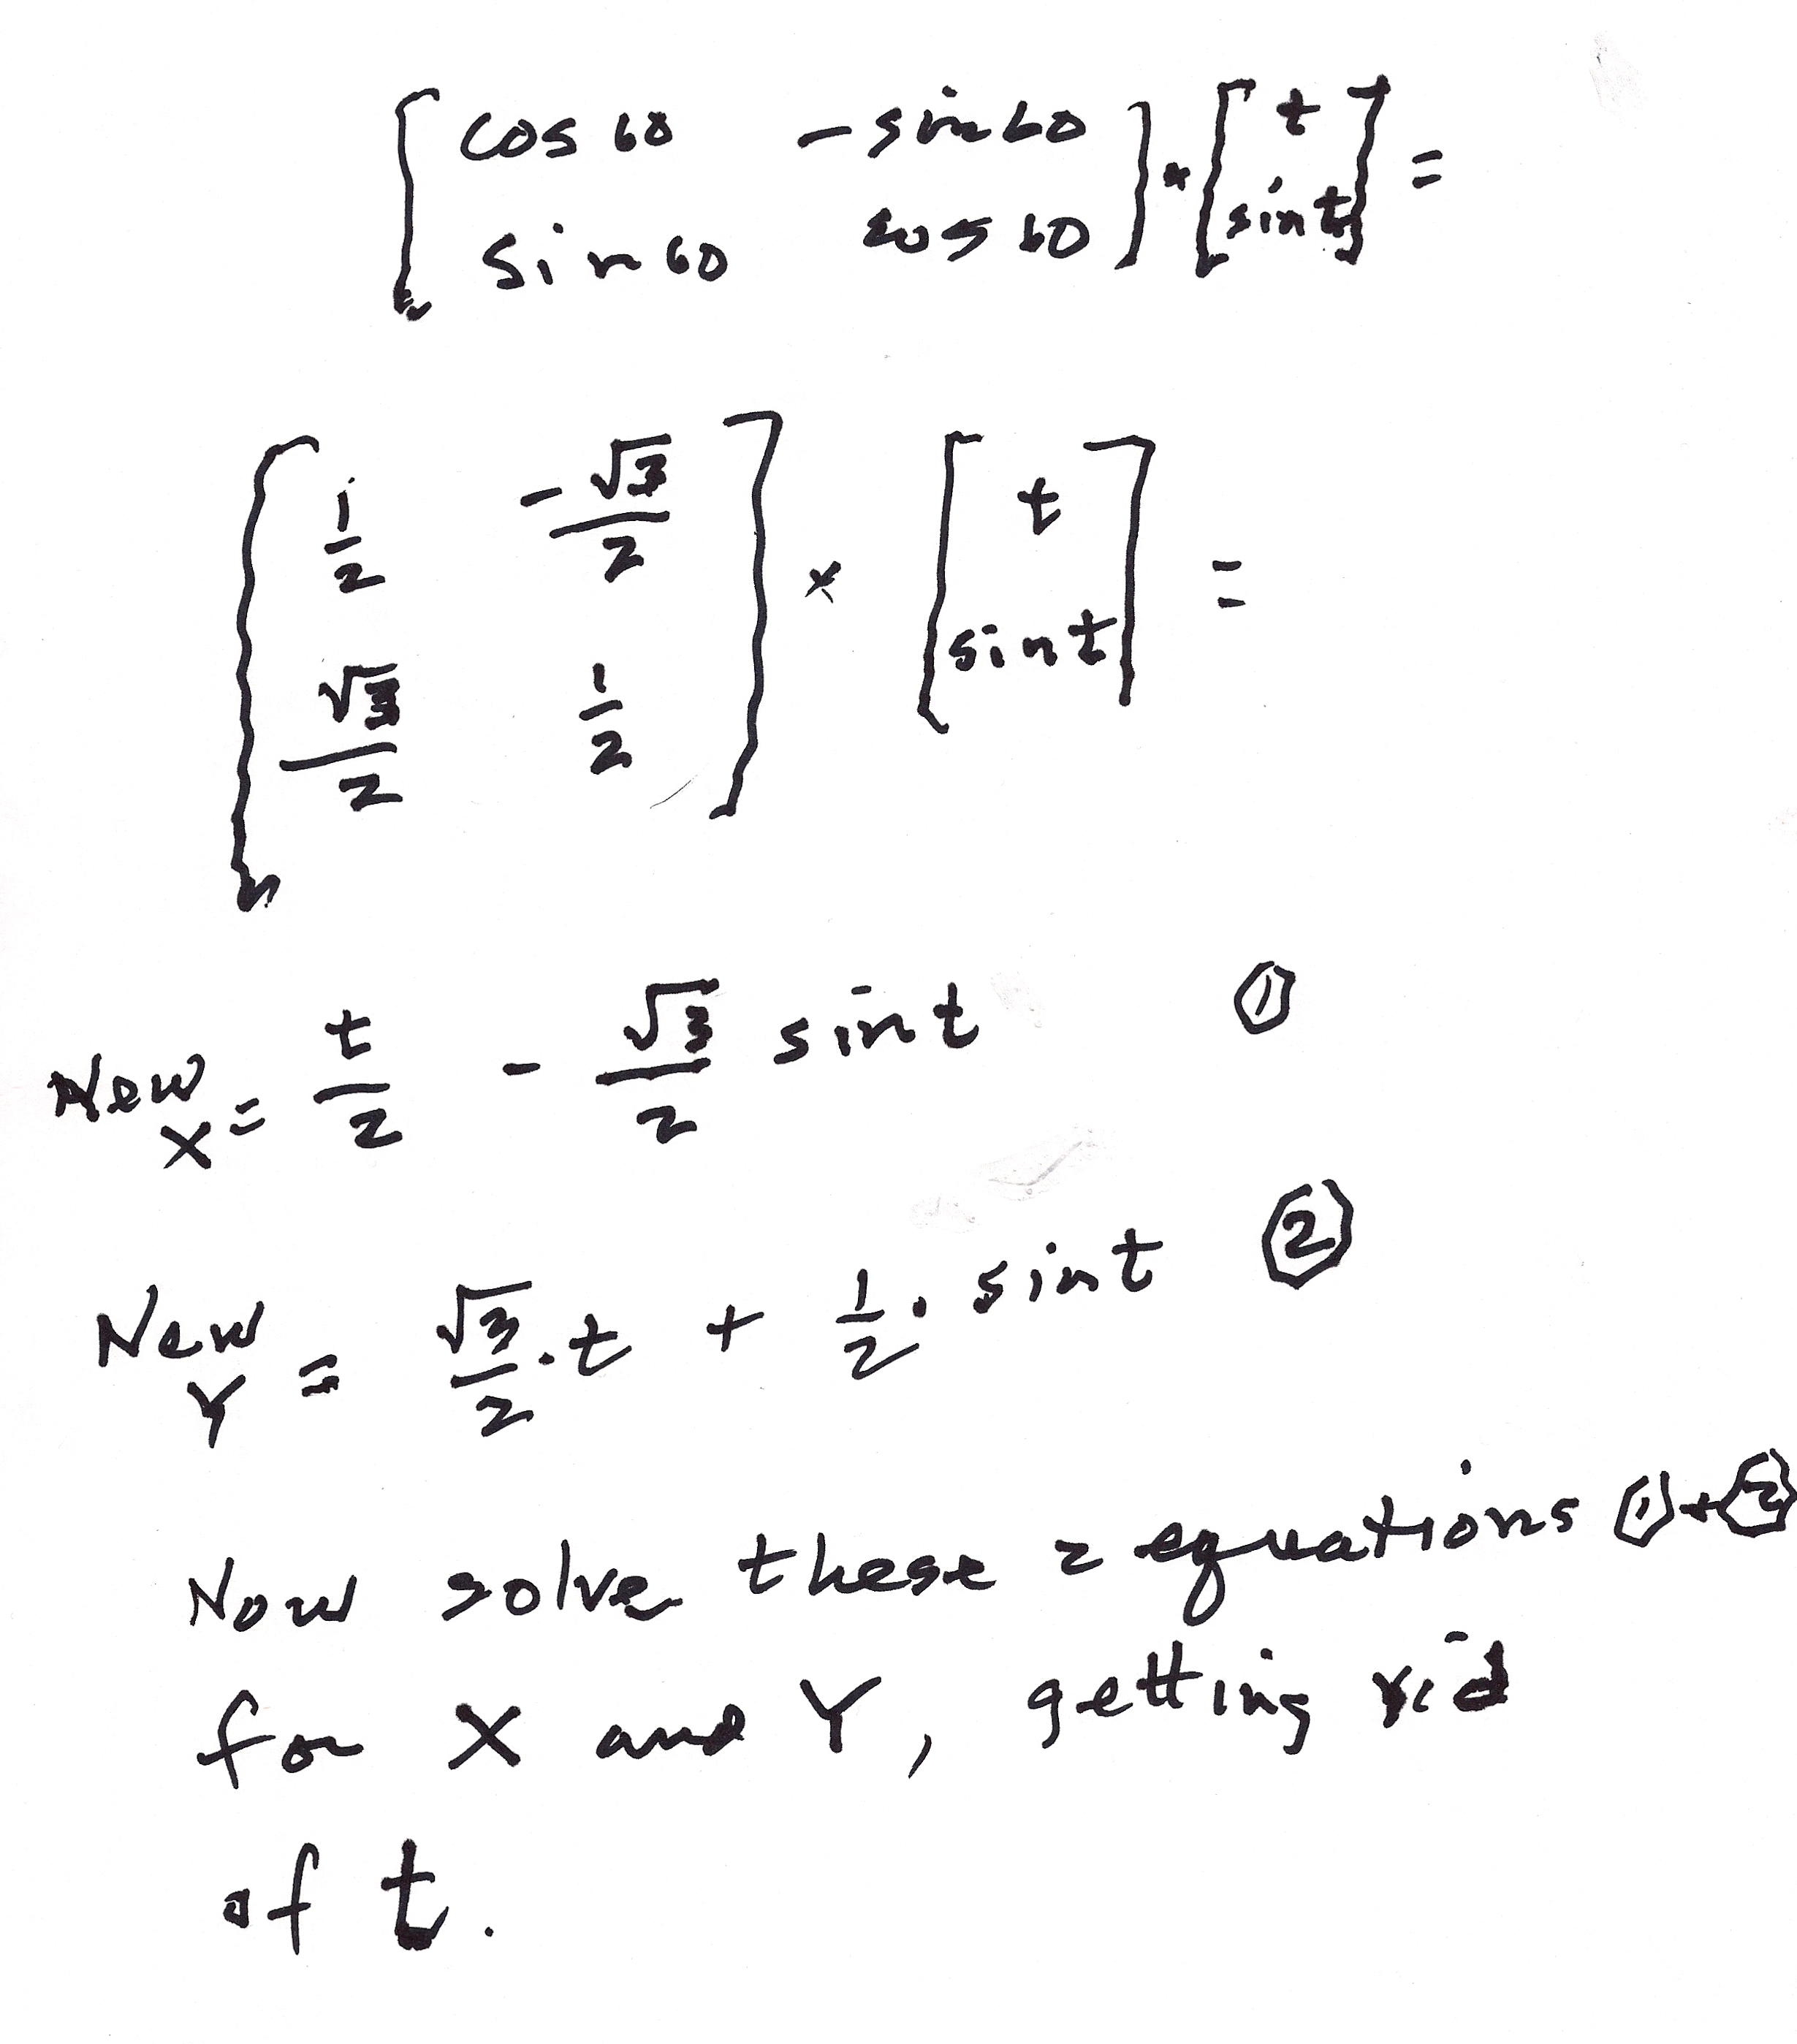 [ cos 60 -sin 60 ] * [ t ] =
[ sin 60 cos 60 ] [ sin t ]
[ 1/2 -√3/2 ] × [ t ] =
[ √3/2 1/2 ] [ sin t ]
New X = t/2 - √3/2 sin t ①
New Y = √3/2 · t + 1/2 · sin t ②
Now solve these 2 equations ① + ②
for X and Y, getting rid
of t.